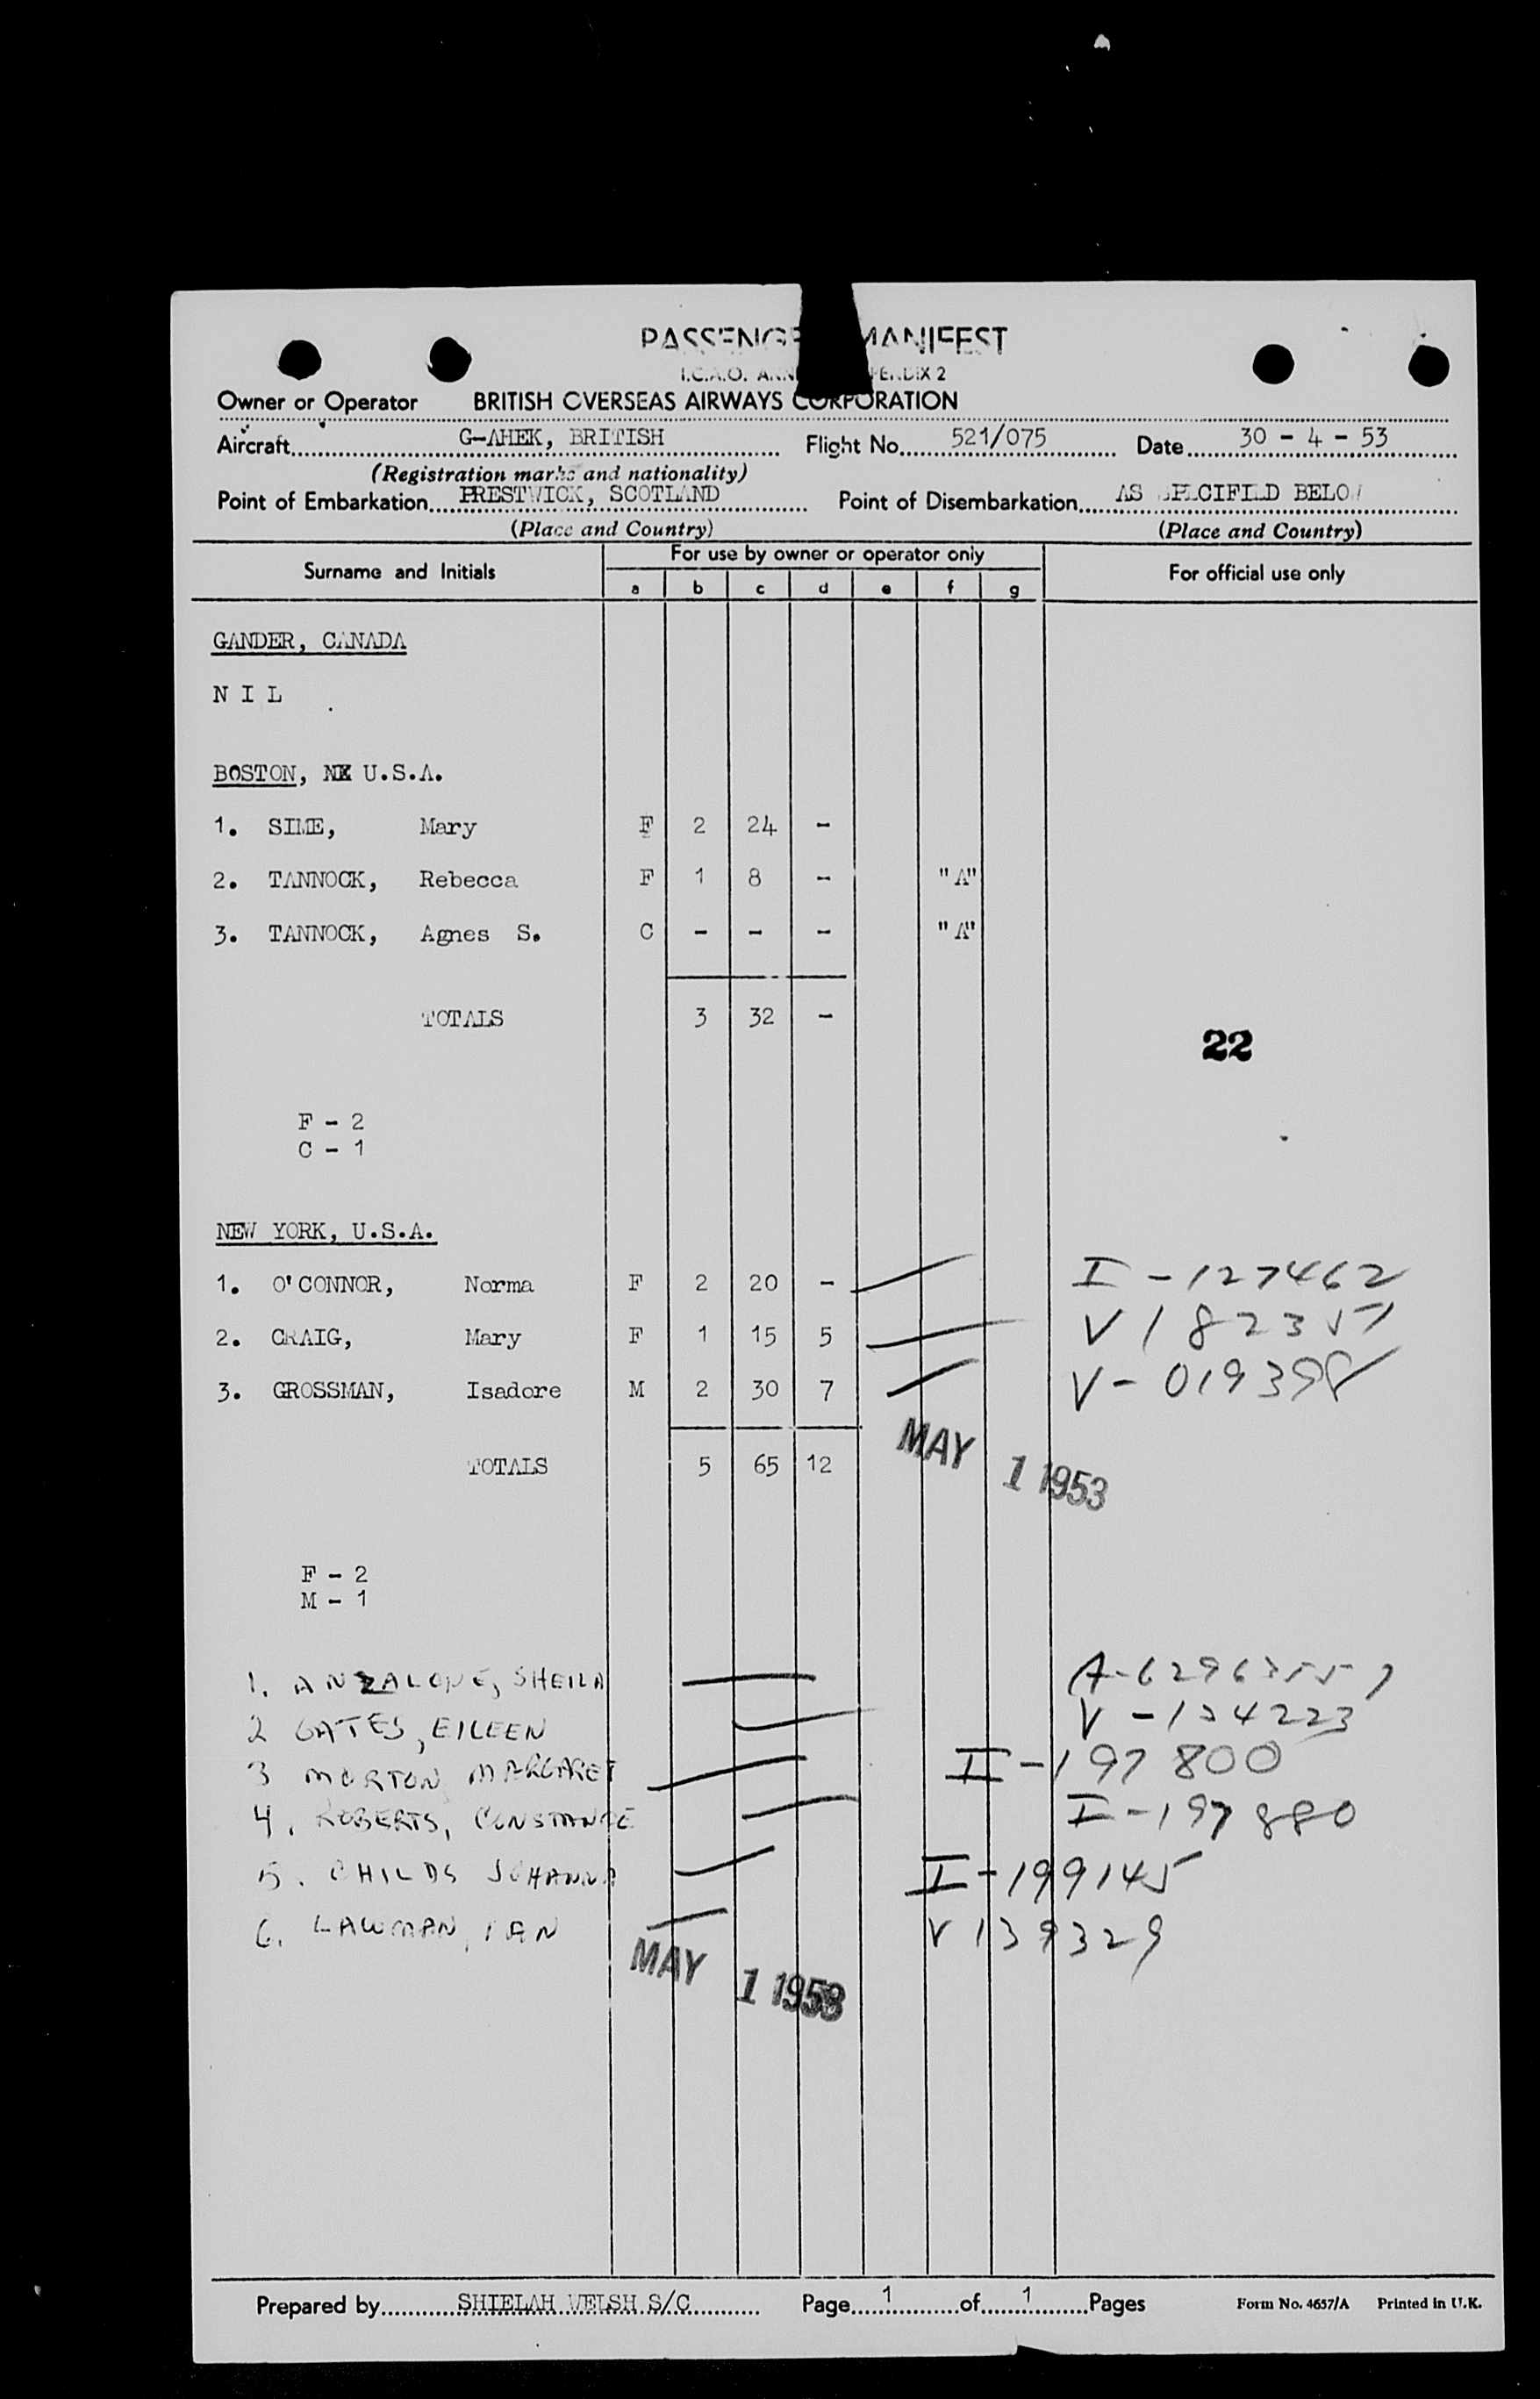 PASSENGER MANIFEST
I.C.A.O. ANN PENDIX 2
Owner or Operator BRITISH OVERSEAS AIRWAYS CORPORATION
Aircraft G-AHEK, BRITISH Flight No. 521/075 Date 30 - 4 - 53
(Registration marks and nationality)
Point of Embarkation PRESTWICK, SCOTLAND Point of Disembarkation AS SPECIFIED BELOW
(Place and Country) (Place and Country)
Surname and Initials For use by owner or operator only For official use only
a b c d e f g
GANDER, CANADA
N I L
BOSTON, U.S.A.
1. SIME, Mary F 2 24 -
2. TANNOCK, Rebecca F 1 8 - "A"
3. TANNOCK, Agnes S. C - - - "A"
TOTALS 3 32 -
22
F - 2
C - 1
NEW YORK, U.S.A.
1. O'CONNOR, Norma F 2 20 - I - 127462
2. CRAIG, Mary F 1 15 5 V 182357
3. GROSSMAN, Isadore M 2 30 7 V - 019398
MAY 1 1953
TOTALS 5 65 12
F - 2
M - 1
1. ANZALONE, SHEILA
2 GATES, EILEEN V - 124223
3 MORTON MARGARET I - 197800
4. ROBERTS, CONSTANCE I - 197880
5. CHILDS JOHANNA I - 199145
6. LAWMAN, IAN V 139329
MAY 1 1953
Prepared by SHIELAH WELSH S/C Page 1 of 1 Pages Form No. 4657/A Printed in U.K.